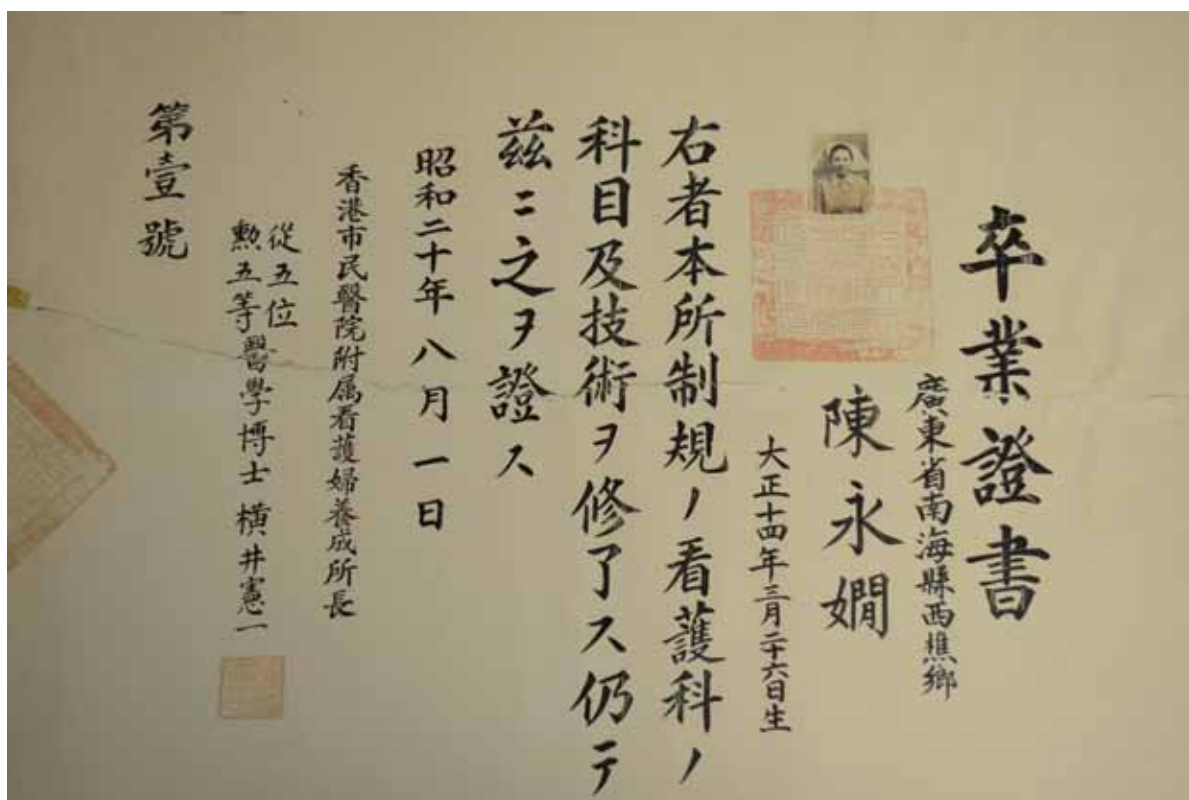 卒業證書
廣東省南海縣西樵鄉
陳永嫺
大正十四年三月二十六日生
右者本所制規ノ看護科ノ
科目及技術ヲ修了ス仍テ
茲ニ之ヲ證ス
昭和二十年八月一日
香港市民醫院附属看護婦養成所長
從五位
勲五等醫學博士 橫井憲一
第壹號